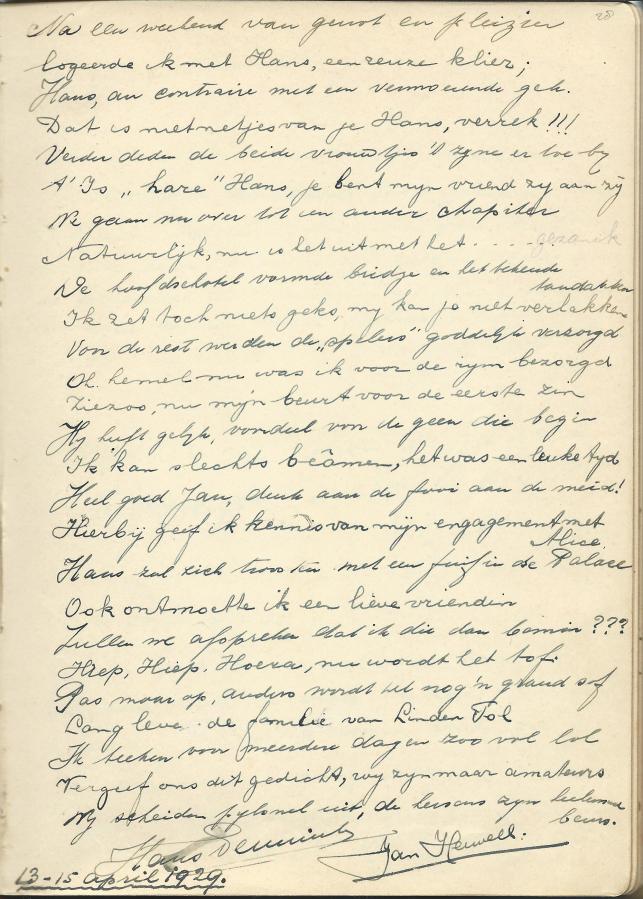 28
Na een weekend van genot en pleizier
logeerde ik met Hans, een reuze klier;
Hans, au contraire met een vermoeiende gek.
Dat is niet netjes van je Hans, verrek!!!
Verder deden de beide vrouwtjes 't zyne er toe by
A' Is „hare" Hans, je bent mijn vriend zy aan zij
We gaan nu over tot een ander chapiter
Natuurlijk, nu is het uit met het .... gezanik
De hoofdschotel vormde bridge en het bekende
Ik zet toch niets geks, my kan je niet verlakken
Voor de rest werden de „spelers" goddelyk verzorgd
Oh hemel nu was ik voor de rym bezorgd
Ziezoo, nu mijn beurt voor de eerste zin
Hy heeft gelyk, voordeel von de geen die begin
Ik kan slechts beâmen, het was een leuke tyd
Heel goed Jan, denk aan de fooi aan de meid!
Hierbij geef ik kennis van mijn engagement met
Alice
Hans zal zich troosten met een fuif in de Palace
Ook ontmoette ik een lieve vriendin
Zullen we afspreken dat ik die dan bemin???
Hiep, Hiep, Hoera, nu wordt het tof.
Pas maar op, anders wordt het nog 'n grand sof
Lang leve de familie van Linden Tol
Ik teeken voor meerdere dagen zoo vol lol
Vergeef ons dit gedicht, wy zyn maar amateurs
Wy scheiden er uit, de heeren zyn
beurs.
Hans
Jan
13-15 april 1929.